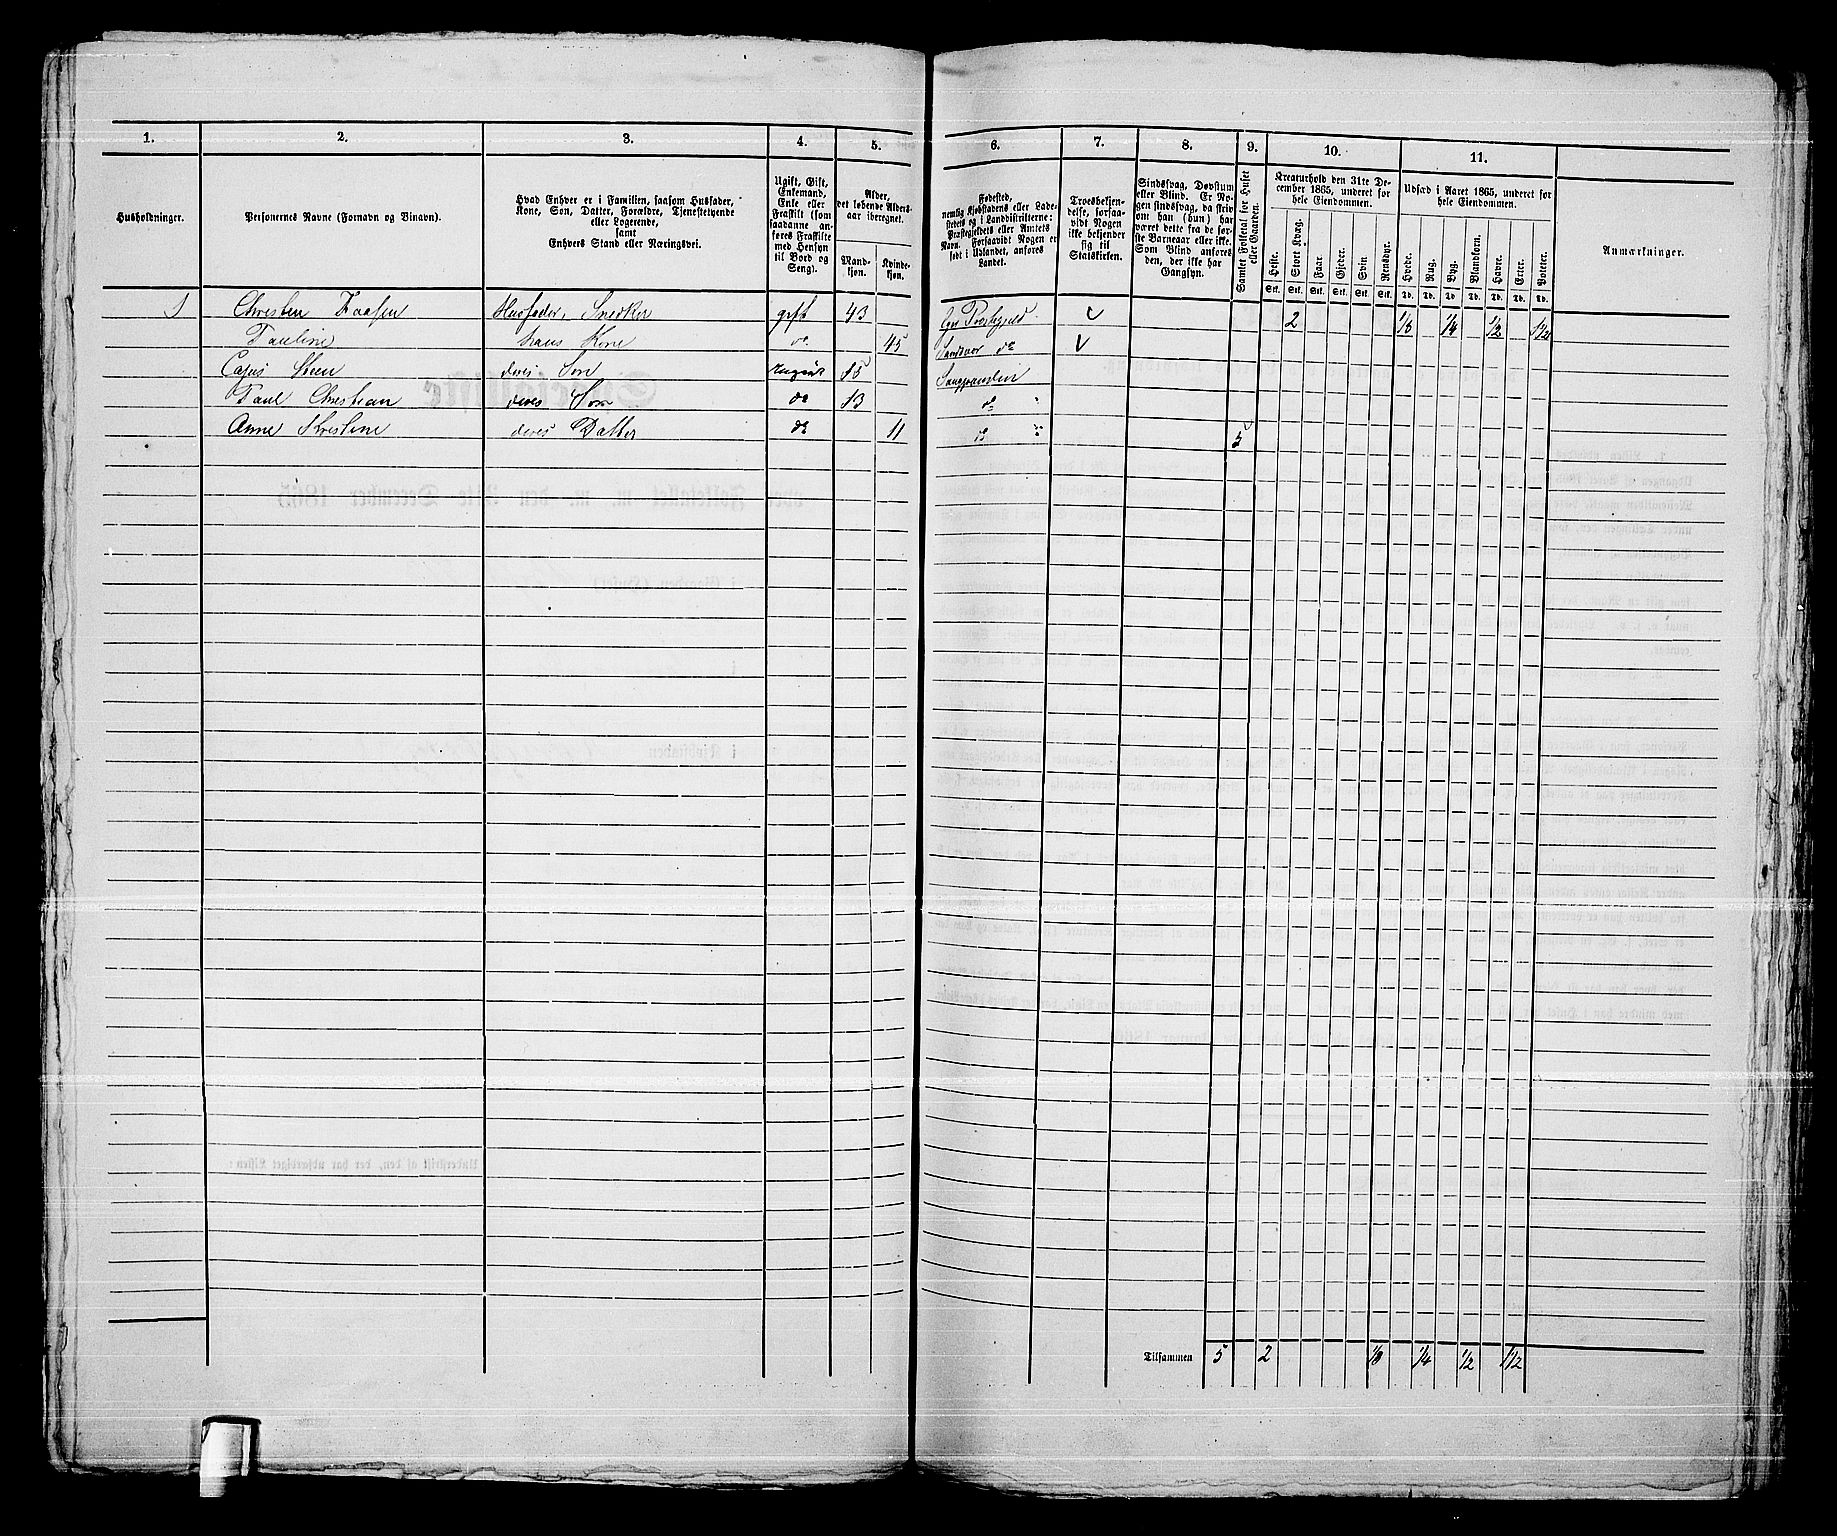 1. 2. 3. 4. 5. 6. 7. 8. 9. 10. 11.
Husholdninger.
Personernes Navne (Fornavn og Binavn).
Hvad Enhver er i Familien, saasom Husfader,
Kone, Søn, Datter, Forældre, Tjenestetyende
eller Logerende,
samt
Enhvers Stand eller Næringsvei.
Ugift, Gift,
Enkemand,
Enke eller
Fraskilt (som
saadanne an-
føres Fraskilte
med Hensyn
til Bord og
Seng).
Alder,
det løbende Alders-
aar iberegnet.
Mand-
kjøn.
Kvinde-
kjøn.
Fødested,
nemlig Kjøbstadens eller Lade-
stedets og i Landdistrikterne:
Præstegjeldets eller Amtets
Navn. Forsaavidt Nogen er
født i Udlandet, anføres
Landet.
Troesbekjen-
delse, forsaa-
vidt Nogen
ikke bekjender
sig til
Statskirken.
Sindssvag, Døvstum
eller Blind. Er No-
gen sindssvag, da skriv
om han (hun) har
været dette fra de før-
ste Barneaar eller ikke.
Som Blind anføres
den, der ikke har
Gangsyn.
Samlet Folketal for Huset
eller Gaarden.
Kreaturhold den 31te De-
cember 1865, underet for
hele Eiendommen.
Heste. Stort Kvæg. Faar. Gjeder. Svin. Rensdyr.
Stk. Stk. Stk. Stk. Stk. Stk.
Udsæd i Aaret 1865, underet for
hele Eiendommen.
Hvede. Rug. Byg. Blandkorn. Havre. Erter. Poteter.
Td. Td. Td. Td. Td. Td. Td.
Anmærkninger.
1 Christen Husfader, Snedker gift 43 2 1/8 1/4 1/2 1 1/2
Pauline hans Kone do 45
Steen deres Søn ugivt 15
Paul Christian deres Søn do 13 do
Anne Kristine deres Datter do 11 do 5
Tilsammen 5 2 1/8 1/4 1/2 1 1/2